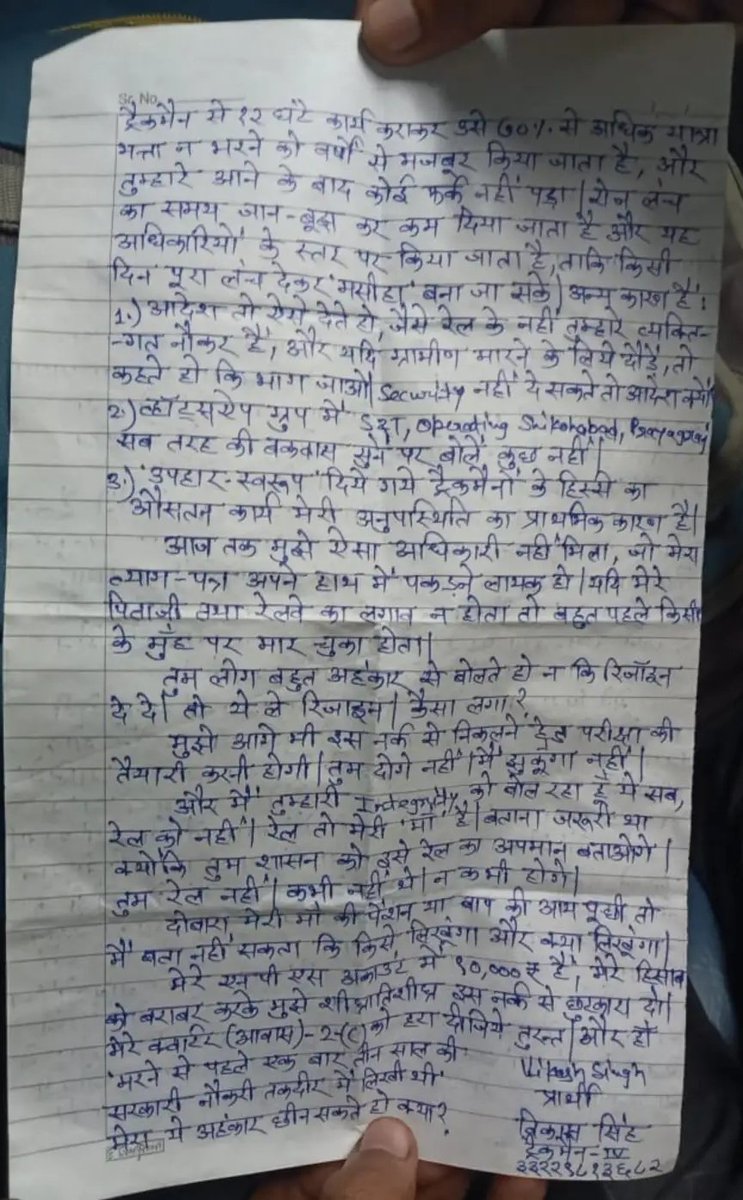 Sr. No.
ट्रैकमैन से १२ घंटे कार्य कराकर उसे ७०% से अधिक यात्रा
भत्ता न भरने को वर्षों से मजबूर किया जाता है, और
तुम्हारे आने के बाद कोई फर्क नहीं पड़ा। रोज लंच
का समय जान-बूझ कर कम दिया जाता है और यह
अधिकारियों के स्तर पर किया जाता है, ताकि किसी
दिन पूरा लंच देकर 'मसीहा' बना जा सके। अन्य कारण हैं:
1.) आदेश तो ऐसे देते हो, जैसे रेल के नहीं तुम्हारे व्यक्ति-
-गत नौकर हैं, और यदि ग्रामीण मारने के लिये दौड़ें, तो
कहते हो कि भाग जाओ। Security नहीं दे सकते तो आदेश क्यों
2.) व्हॉट्सऐप ग्रुप में Operating Shikohabad,
सब तरह की बकवास सुनें पर बोलें कुछ नहीं।
3.) 'उपहार-स्वरूप' दिये गये ट्रैकमैनों के हिस्से का
औसतन कार्य मेरी अनुपस्थिति का प्राथमिक कारण है।
आज तक मुझे ऐसा अधिकारी नहीं मिला, जो मेरा
त्याग-पत्र अपने हाथ में पकड़ने लायक हो। यदि मेरे
पिताजी तथा रेलवे का लगाव न होता तो बहुत पहले किसी
के मुँह पर मार चुका होता।
तुम लोग बहुत अहंकार से बोलते हो न कि रिजाइन
दे दे। तो ये ले रिजाइन। कैसा लगा?
मुझे आगे भी इस नर्क से निकलने हेतु परीक्षा की
तैयारी करनी होगी। तुम दोगे नहीं। मैं झुकूंगा नहीं।
और मैं तुम्हारी Integrity को बोल रहा हूँ ये सब,
रेल को नहीं। रेल तो मेरी 'माँ' है। बताना जरूरी था
क्योंकि तुम शासन को इसे रेल का अपमान बताओगे।
तुम रेल नहीं। कभी नहीं थे। न कभी होगे।
दोबारा मेरी माँ की पेंशन या बाप की आय पूछी तो
मैं बता नहीं सकता कि किसे लिखूंगा और क्या लिखूंगा।
मेरे एन पी एस अकाउंट में ९०,०००₹ हैं, मेरे हिसाब
को बराबर करके मुझे शीघ्रातिशीघ्र इस नर्क से छुटकारा दो।
मेरे क्वार्टर (आवास)-2-(C) को हटा दीजिये तुरन्त। और हाँ
'मरने से पहले एक बार तीन साल की
सरकारी नौकरी तकदीर में लिखी थी'
मेरा ये अहंकार छीन सकते हो क्या?
Vikash Singh
प्रार्थी
विकास सिंह
ट्रैकमैन-IV
३३२२९८१३६८२